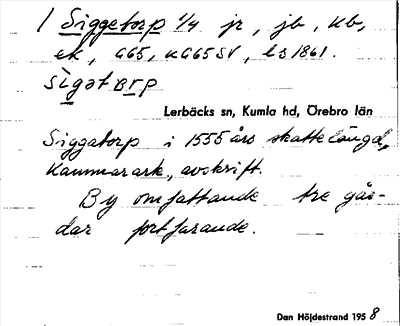 1 Siggetorp 4/4 jr, jb, kb,
ek, G65, KG65SV, ls 1861.
sìgətɐrp
Lerbäcks sn, Kumla hd, Örebro län
Siggatorp i 1555 års skattelängd,
Kammarark., avskrift.
By omfattande tre går-
dar fortfarande.
Dan Höjdestrand 1958